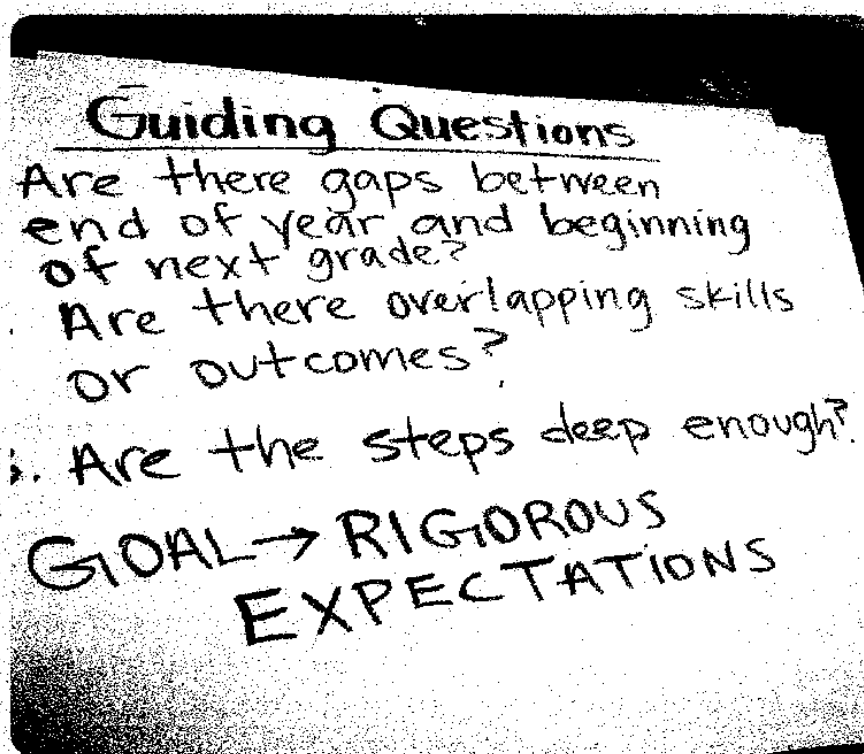 Guiding Questions
Are there gaps between
end of year and beginning
of next grade?
Are there overlapping skills
or outcomes?
. Are the steps deep enough?
GOAL → RIGOROUS
EXPECTATIONS